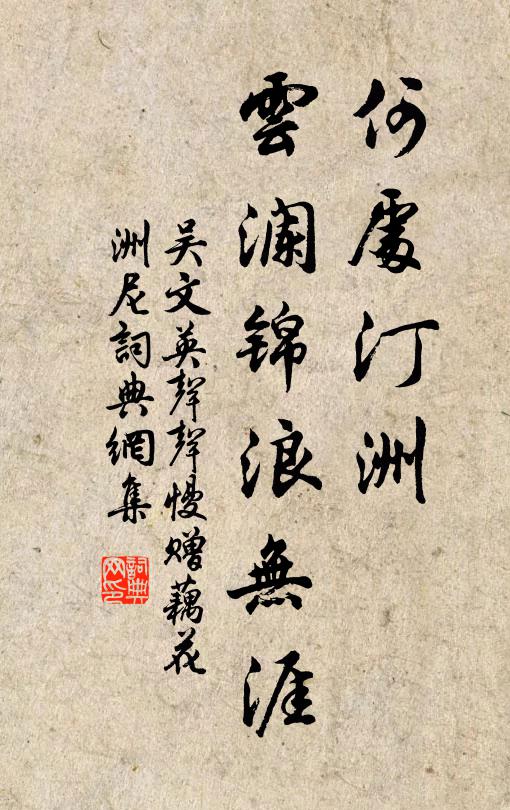 何處汀洲
雲瀾錦浪無涯
吴文英聲聲慢赠藕花
洲尼詞典網集
詞典网印